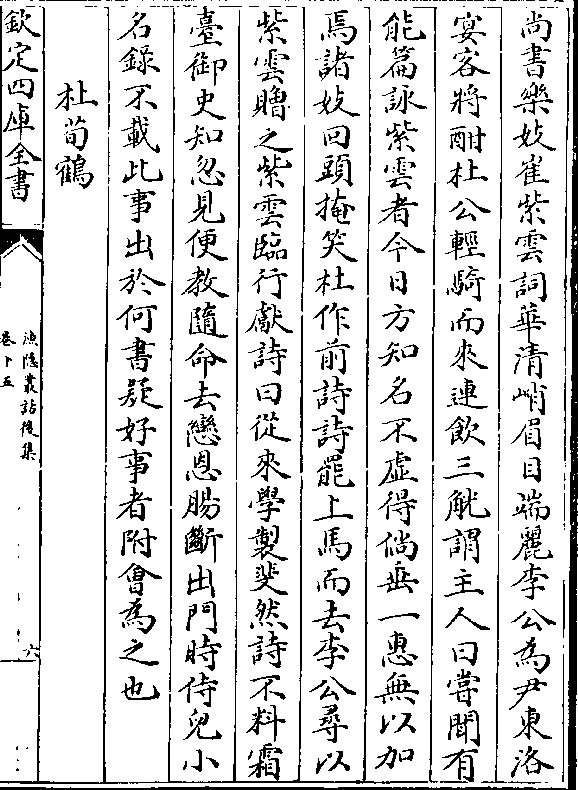 尚書樂妓崔紫雲詞華清峭眉目端麗李公為尹東洛
宴客將酣杜公輕騎而來連飲三觥謂主人曰嘗聞有
能篇詠紫雲者今日方知名不虛得倘垂一惠無以加
焉諸妓回頭掩笑杜作前詩詩罷上馬而去李公尋以
紫雲贈之紫雲臨行獻詩曰從來學製斐然詩不料霜
臺御史知忽見便教隨命去戀恩腸斷出門時侍兒小
名錄不載此事出於何書疑好事者附會為之也
杜荀鶴
欽定四庫全書
漁隱叢話後集
卷十五
六